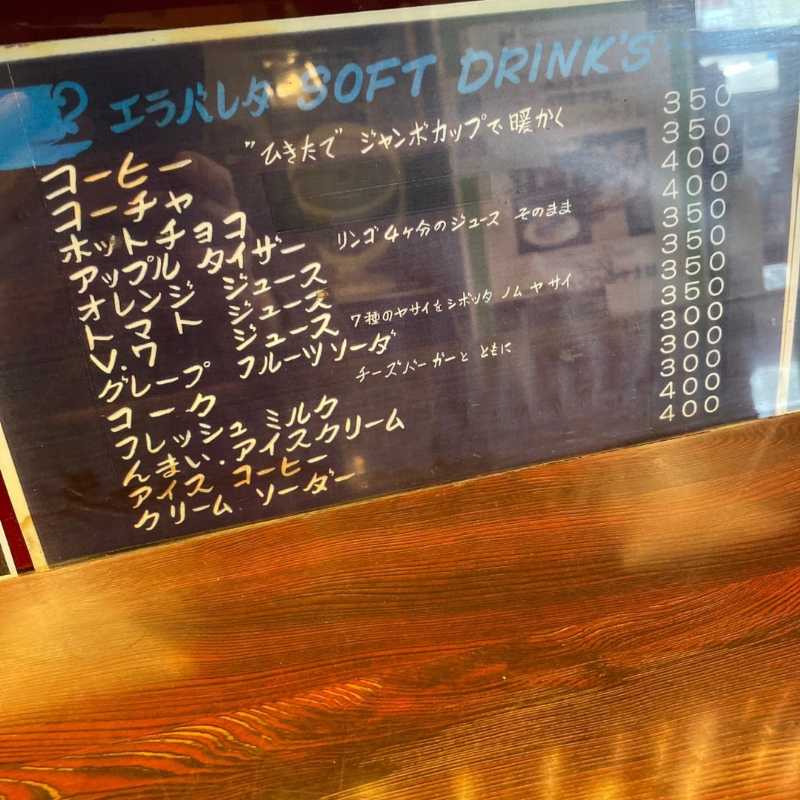 エラバレタ SOFT DRINK'S
コーヒー "ひきたで ジャンボカップで暖かく 350
コーチャ 350
ホットチョコ 400
アップル タイザー リンゴ4ヶ分のジュース そのまま 400
オレンジ ジュース 350
トマト ジュース 350
V.ワ ジュース 7種のヤサイをシボッタ ノム ヤサイ 350
グレープ フルーツソーダ 350
コーク チーズバーガーと ともに 300
フレッシュ ミルク 300
んまい.アイスクリーム 300
アイス.コーヒー 400
クリーム ソーダー 400